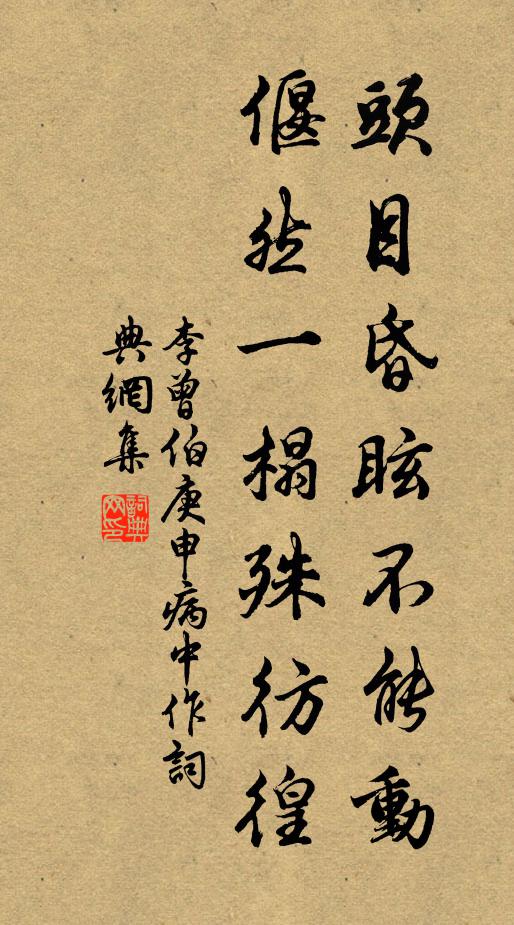 頭目昏眩不能動
偃然一榻殊彷徨
李曾伯庚申病中作詞
典網集
詞典網印